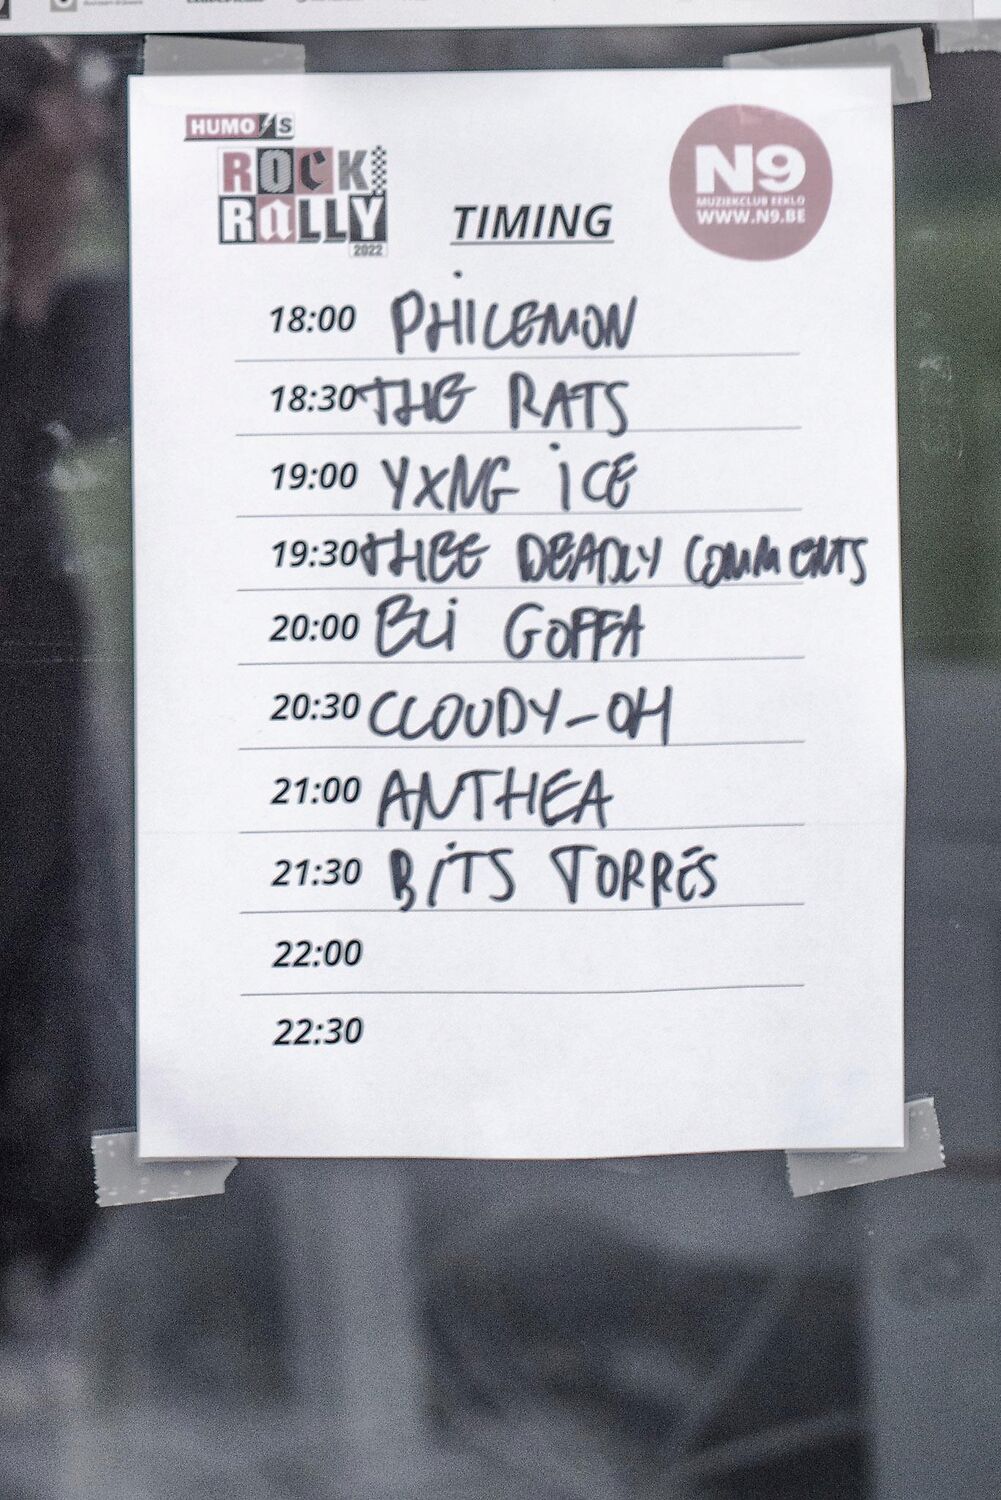 HUMO'S
ROCK
RALLY
2022
N9
MUZIEKCLUB EEKLO
WWW.N9.BE
TIMING
18:00 PHILEMON
18:30 THE RATS
19:00 YXNG iCE
19:30 THEE DEADLY COMMENTS
20:00 ELi GOFFA
20:30 CLOUDY-OH
21:00 ANTHEA
21:30 BiTS TORRÉS
22:00
22:30